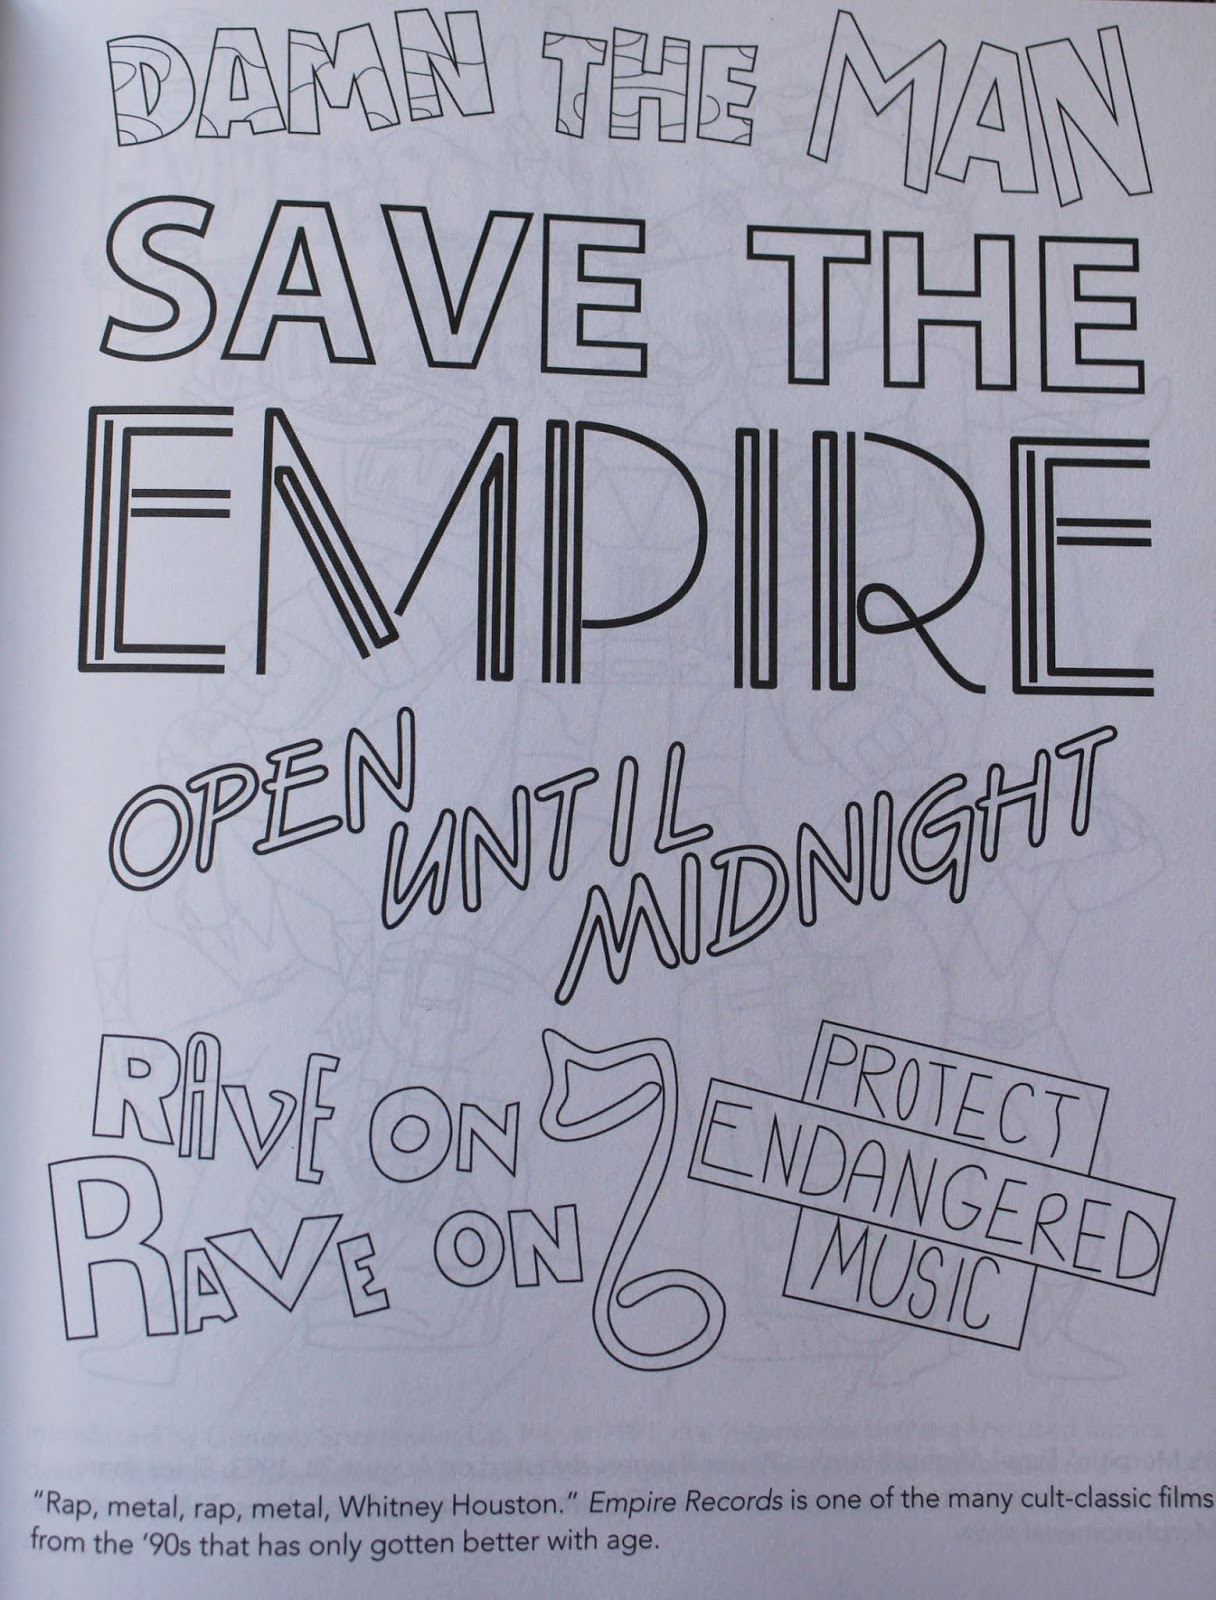 DAMN THE MAN
SAVE THE
EMPIRE
OPEN
UNTIL
MIDNIGHT
RAVE ON
RAVE ON
PROTECT
ENDANGERED
MUSIC
“Rap, metal, rap, metal, Whitney Houston.” Empire Records is one of the many cult-classic films
from the ’90s that has only gotten better with age.